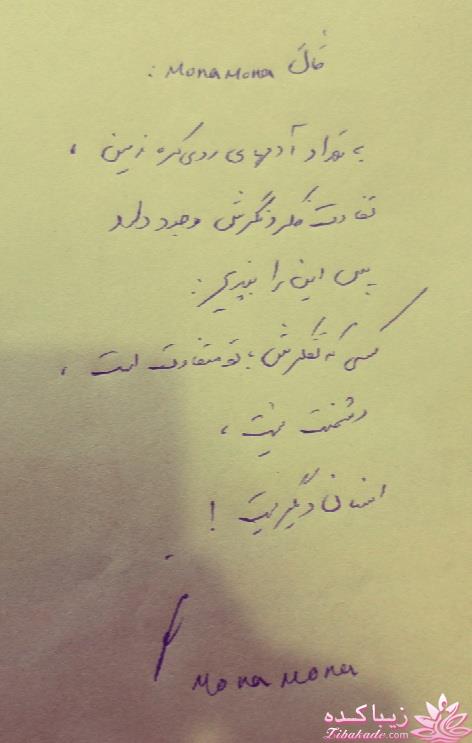 فال monamona :
به تعداد آدمهای روی کره زمین ،
تفاوت فکر و نگرش وجود دارد
پس این را بپذیر :
کسی که تفکرش با تو متفاوت است ،
دشمنت نیست ،
انسان دیگریست !
monamona
زیباکده
Zibakade.com